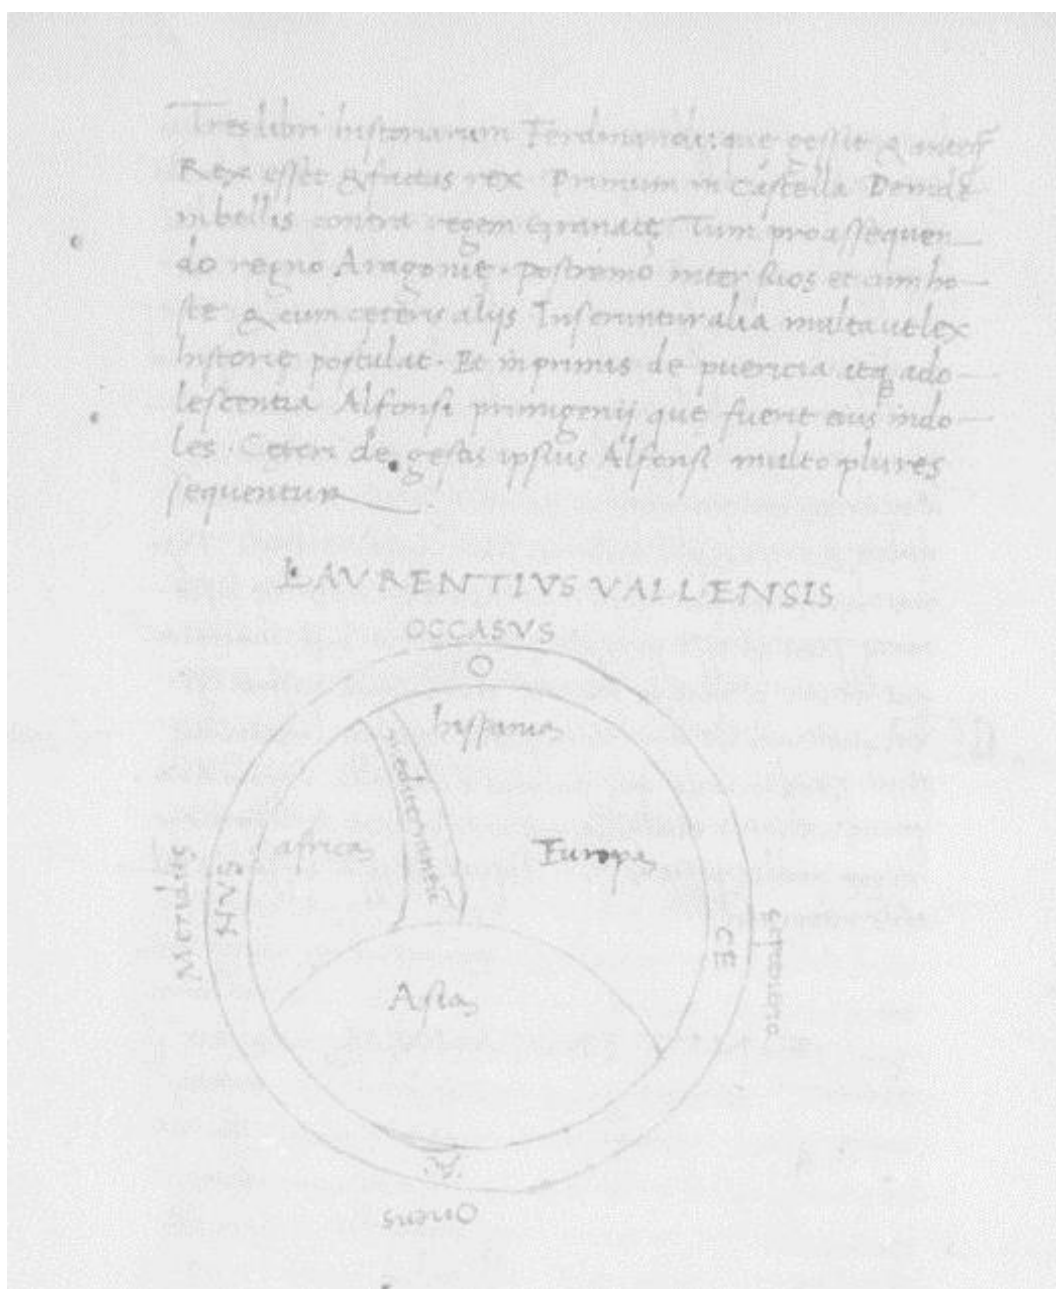 Tres libri historiarum Ferdinandi: que gessit & anteq̃
Rex esset & factus rex Primum in Castella Deinde
in bellis contra regem Granatę Tum pro assequen
do regno Aragonię. postremo inter suos et cum ho
ste & cum ceteris alijs Inseruntur alia multa ut lex
historię postulat. Et in primis de puericia atq ado
lescentia Alfonsi primigenij que fuerit eius indo
les. Ceteri de gestis ipsius Alfonsi multo plures
sequentur
LAVRENTIVS VALLENSIS
OCCASVS
O
hispania
mediterraneū
africa
Europa
Meridies
NVS
CE
Septentrio
Asia
A
Oriens